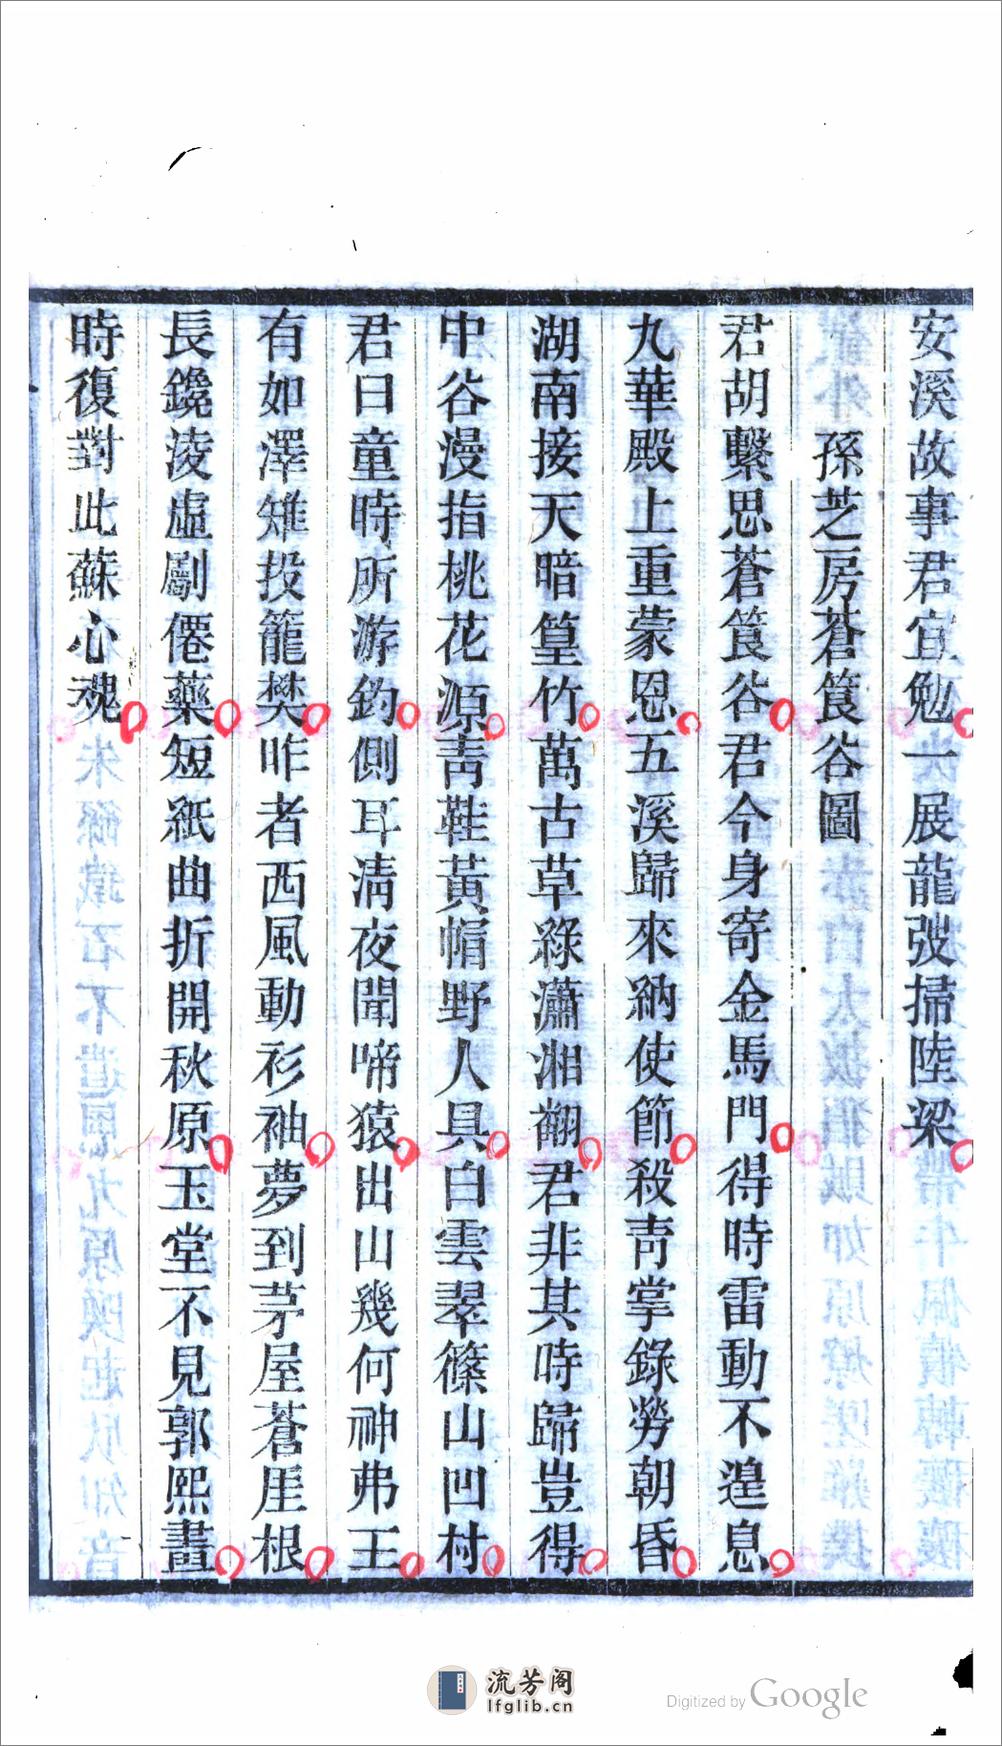 安溪故事君宜勉一展龍弢掃陸梁
孫芝房蒼筤谷圖
君胡繫思蒼筤谷君今身寄金馬門得時雷動不遑息
九華殿上重蒙恩五溪歸來納使節殺青掌錄勞朝昏
湖南接天暗篁竹萬古草綠瀟湘翻君非其時歸豈得
中谷漫指桃花源青鞋黃帽野人具白雲翠篠山凹村
君曰童時所游釣側耳清夜聞啼猿出山幾何神弗王
有如澤雉投籠樊昨者西風動衫袖夢到茅屋蒼厓根
長鑱淩虛劚僊藥短紙曲折開秋原玉堂不見郭熙畫
時復對此蘇心魂
流芳阁
lfglib.cn
Digitized by Google